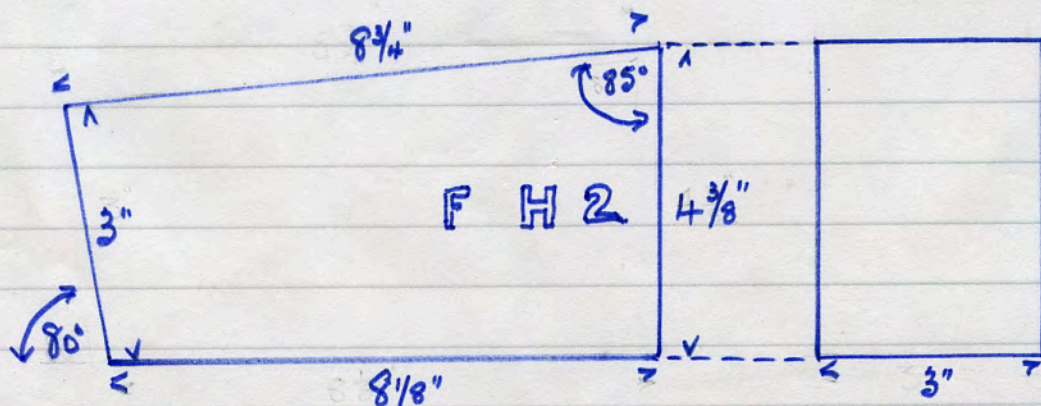 8¾"
85°
3"
F H 2
4⅜"
80°
8⅛"
3"